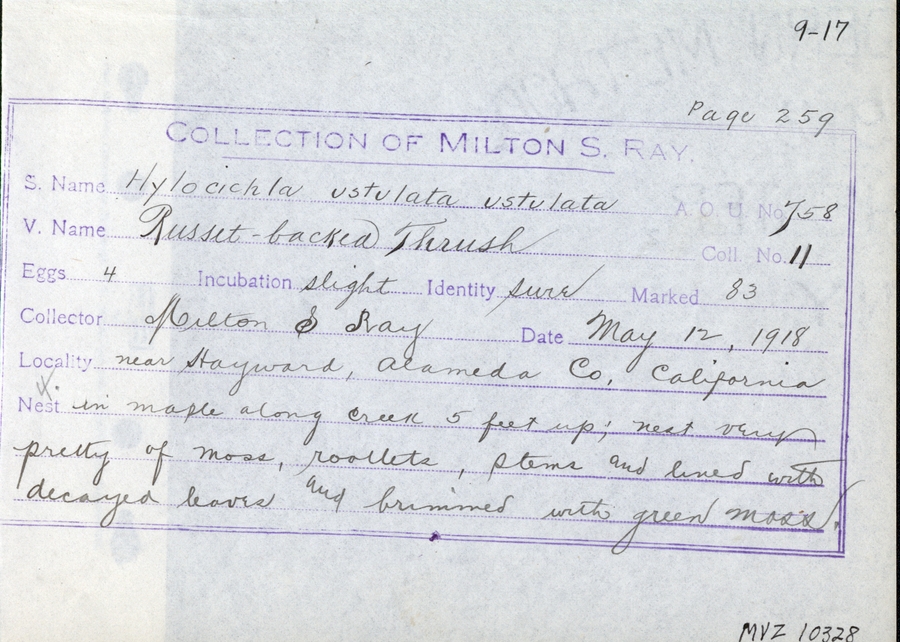 9-17
Page 259
COLLECTION OF MILTON S. RAY.
S. Name Hylocichla ustulata ustulata A. O. U. No. 758
V. Name Russet-backed Thrush Coll. No. 11
Eggs 4 Incubation slight Identity sure Marked 83
Collector Milton S Ray Date May 12, 1918
Locality near Hayward, Alameda Co, California
X.
Nest in maple along creek 5 feet up; nest very
pretty of moss, rootlets, stems and lined with
decayed leaves and brimmed with green moss.
MVZ 10328